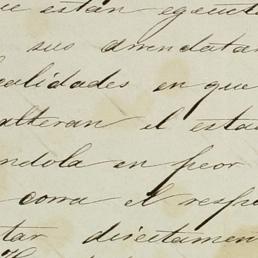 ue están egecut
sus arrendatar
calidades en que
alteran el estad
éndola en peor
corra el respe
tar directamen